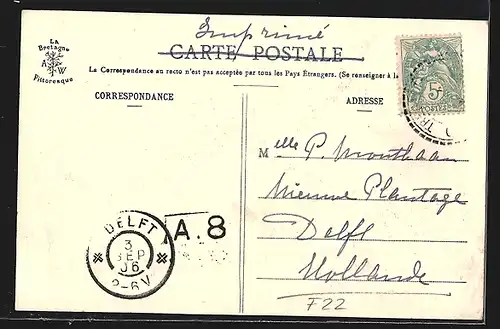 Imprimé
La
Bretagne
A W
Pittoresque
CARTE POSTALE
La Correspondance au recto n'est pas acceptée par tous les Pays Étrangers. (Se renseigner à la
CORRESPONDANCE
ADRESSE
5c
POSTES
Melle P. Monthaan
Nieuwe Plantage
Delft
Hollande
F22
DELFT
3
SEP
06
2-6V
A.8